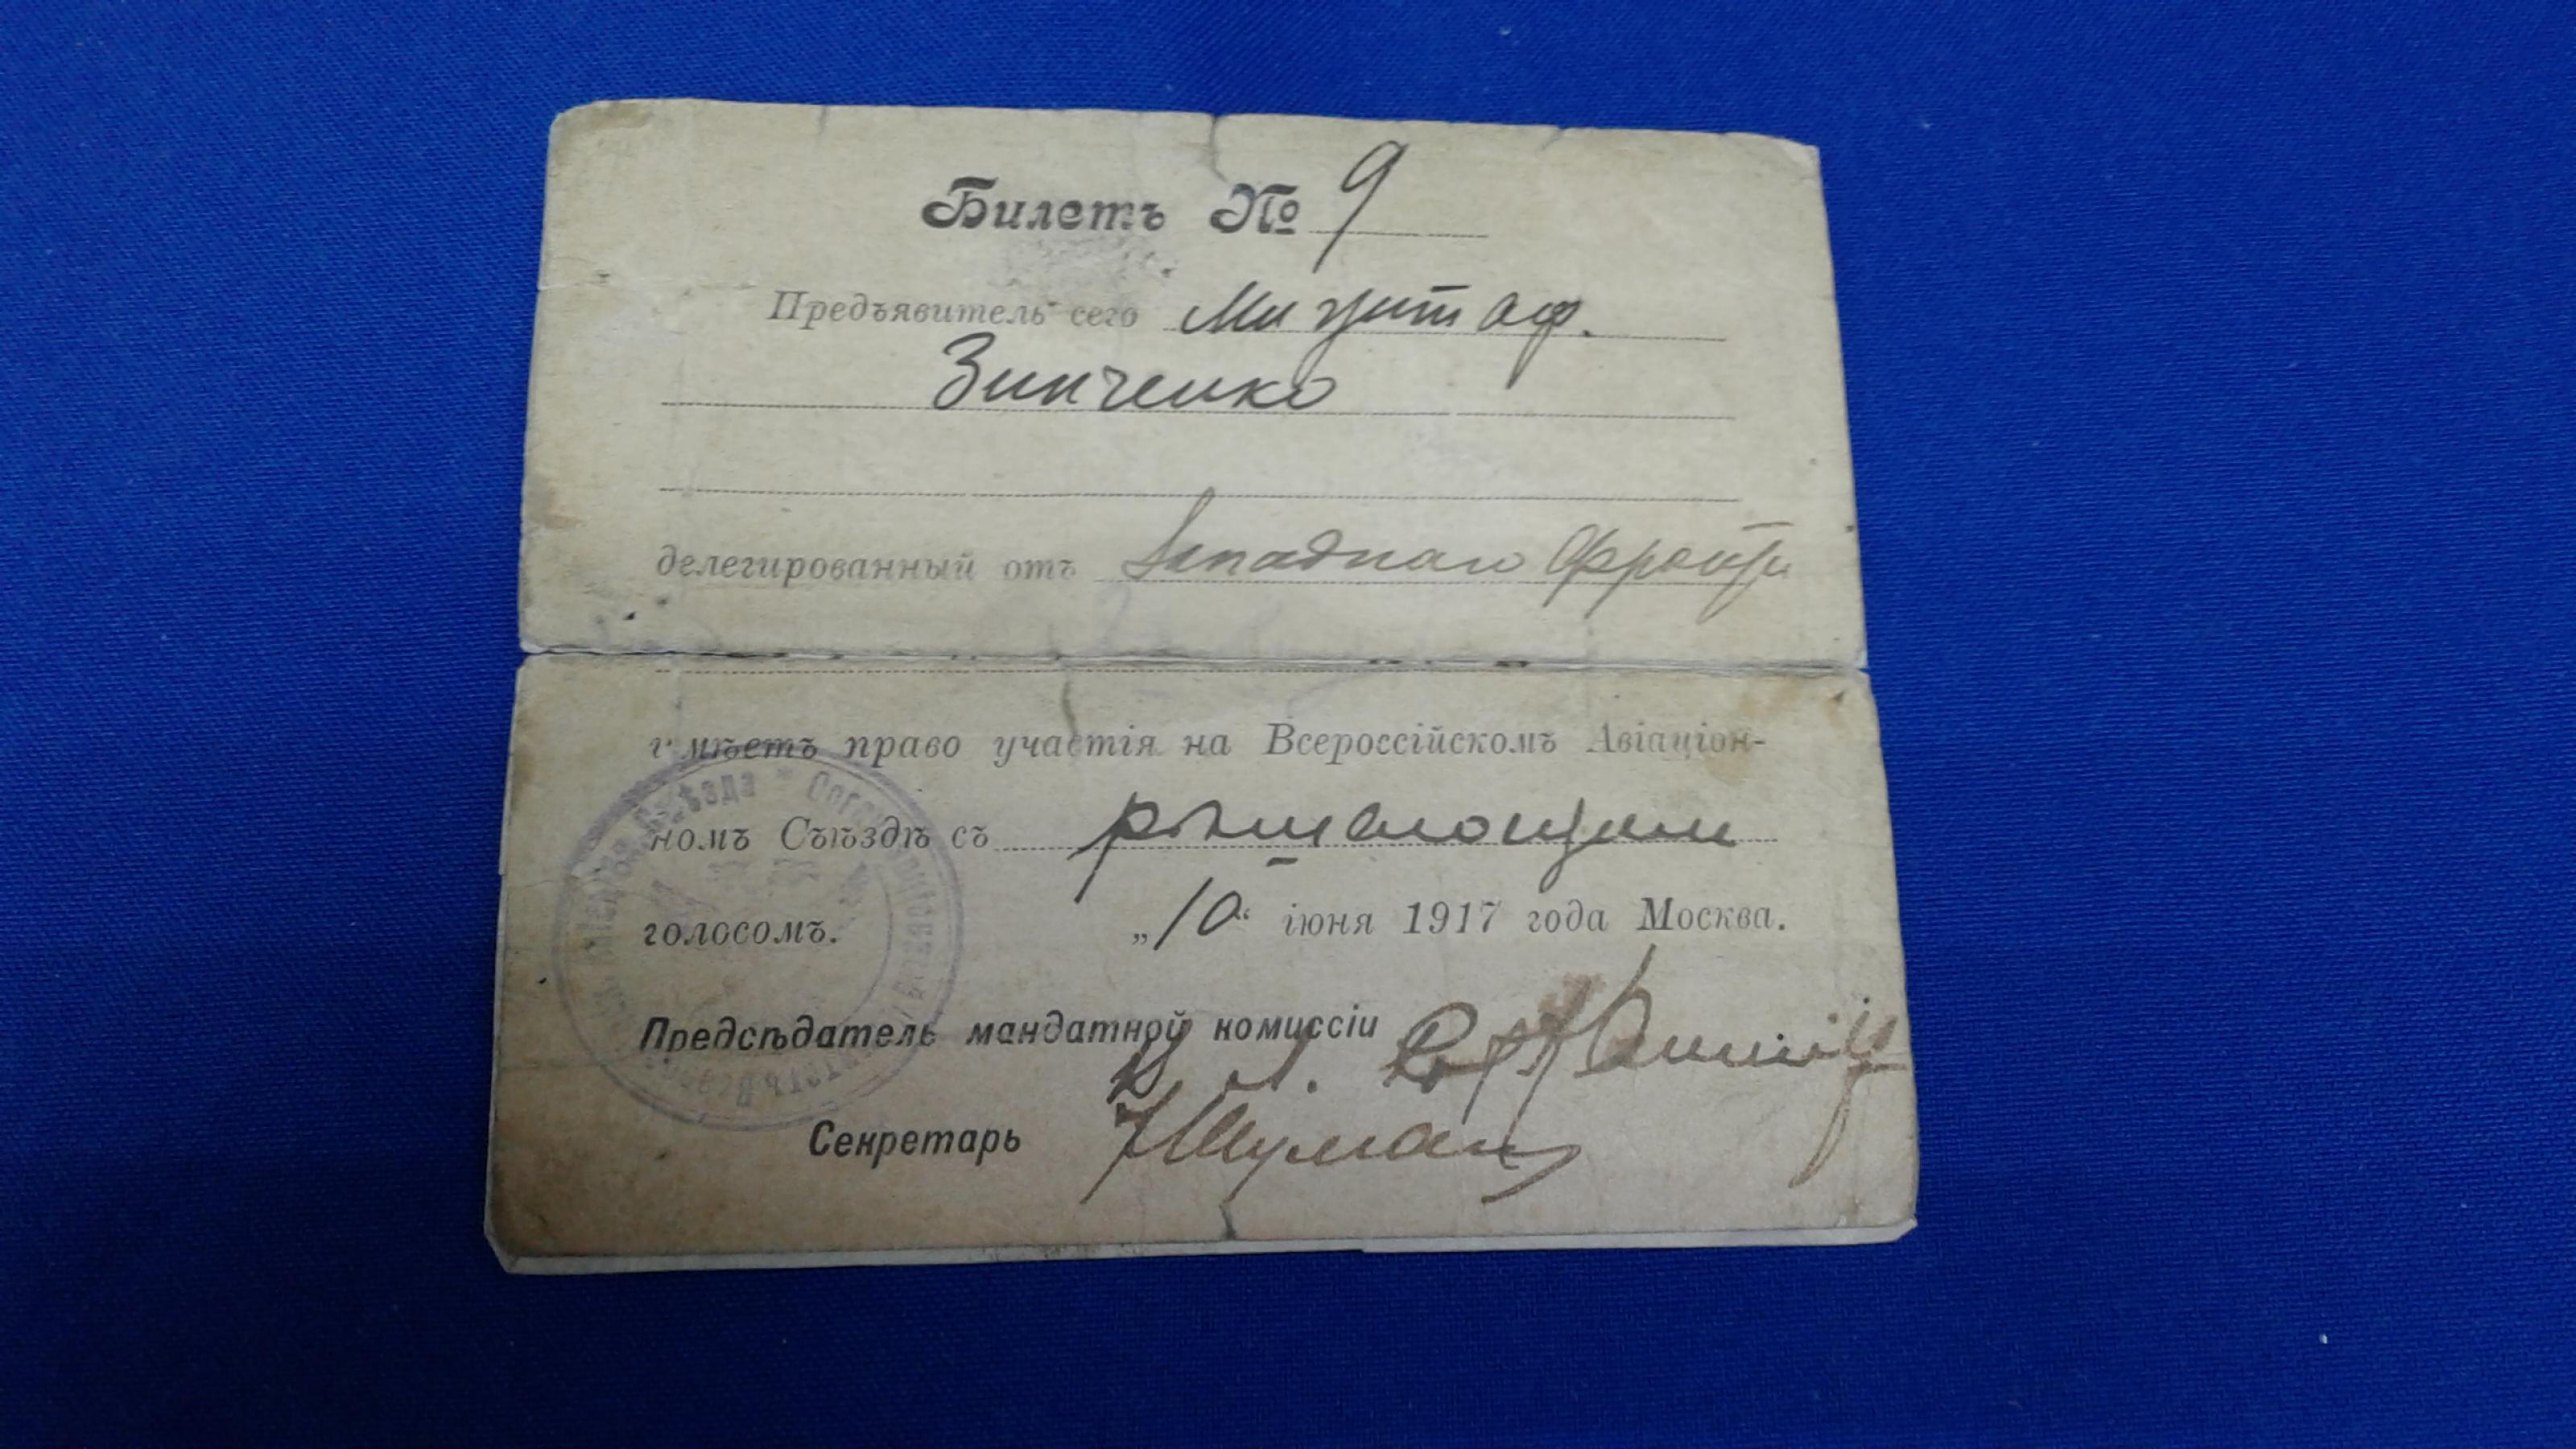 Билетъ № 9
Предъявитель сего
Зинченко
делегированный отъ Западнаго Фронта
имѣетъ право участія на Всероссійскомъ Авіаціон-
номъ Съѣздѣ съ рѣшающимъ
голосомъ. „10“ іюня 1917 года Москва.
Предсѣдатель мандатной комиссіи
Секретарь Шуман